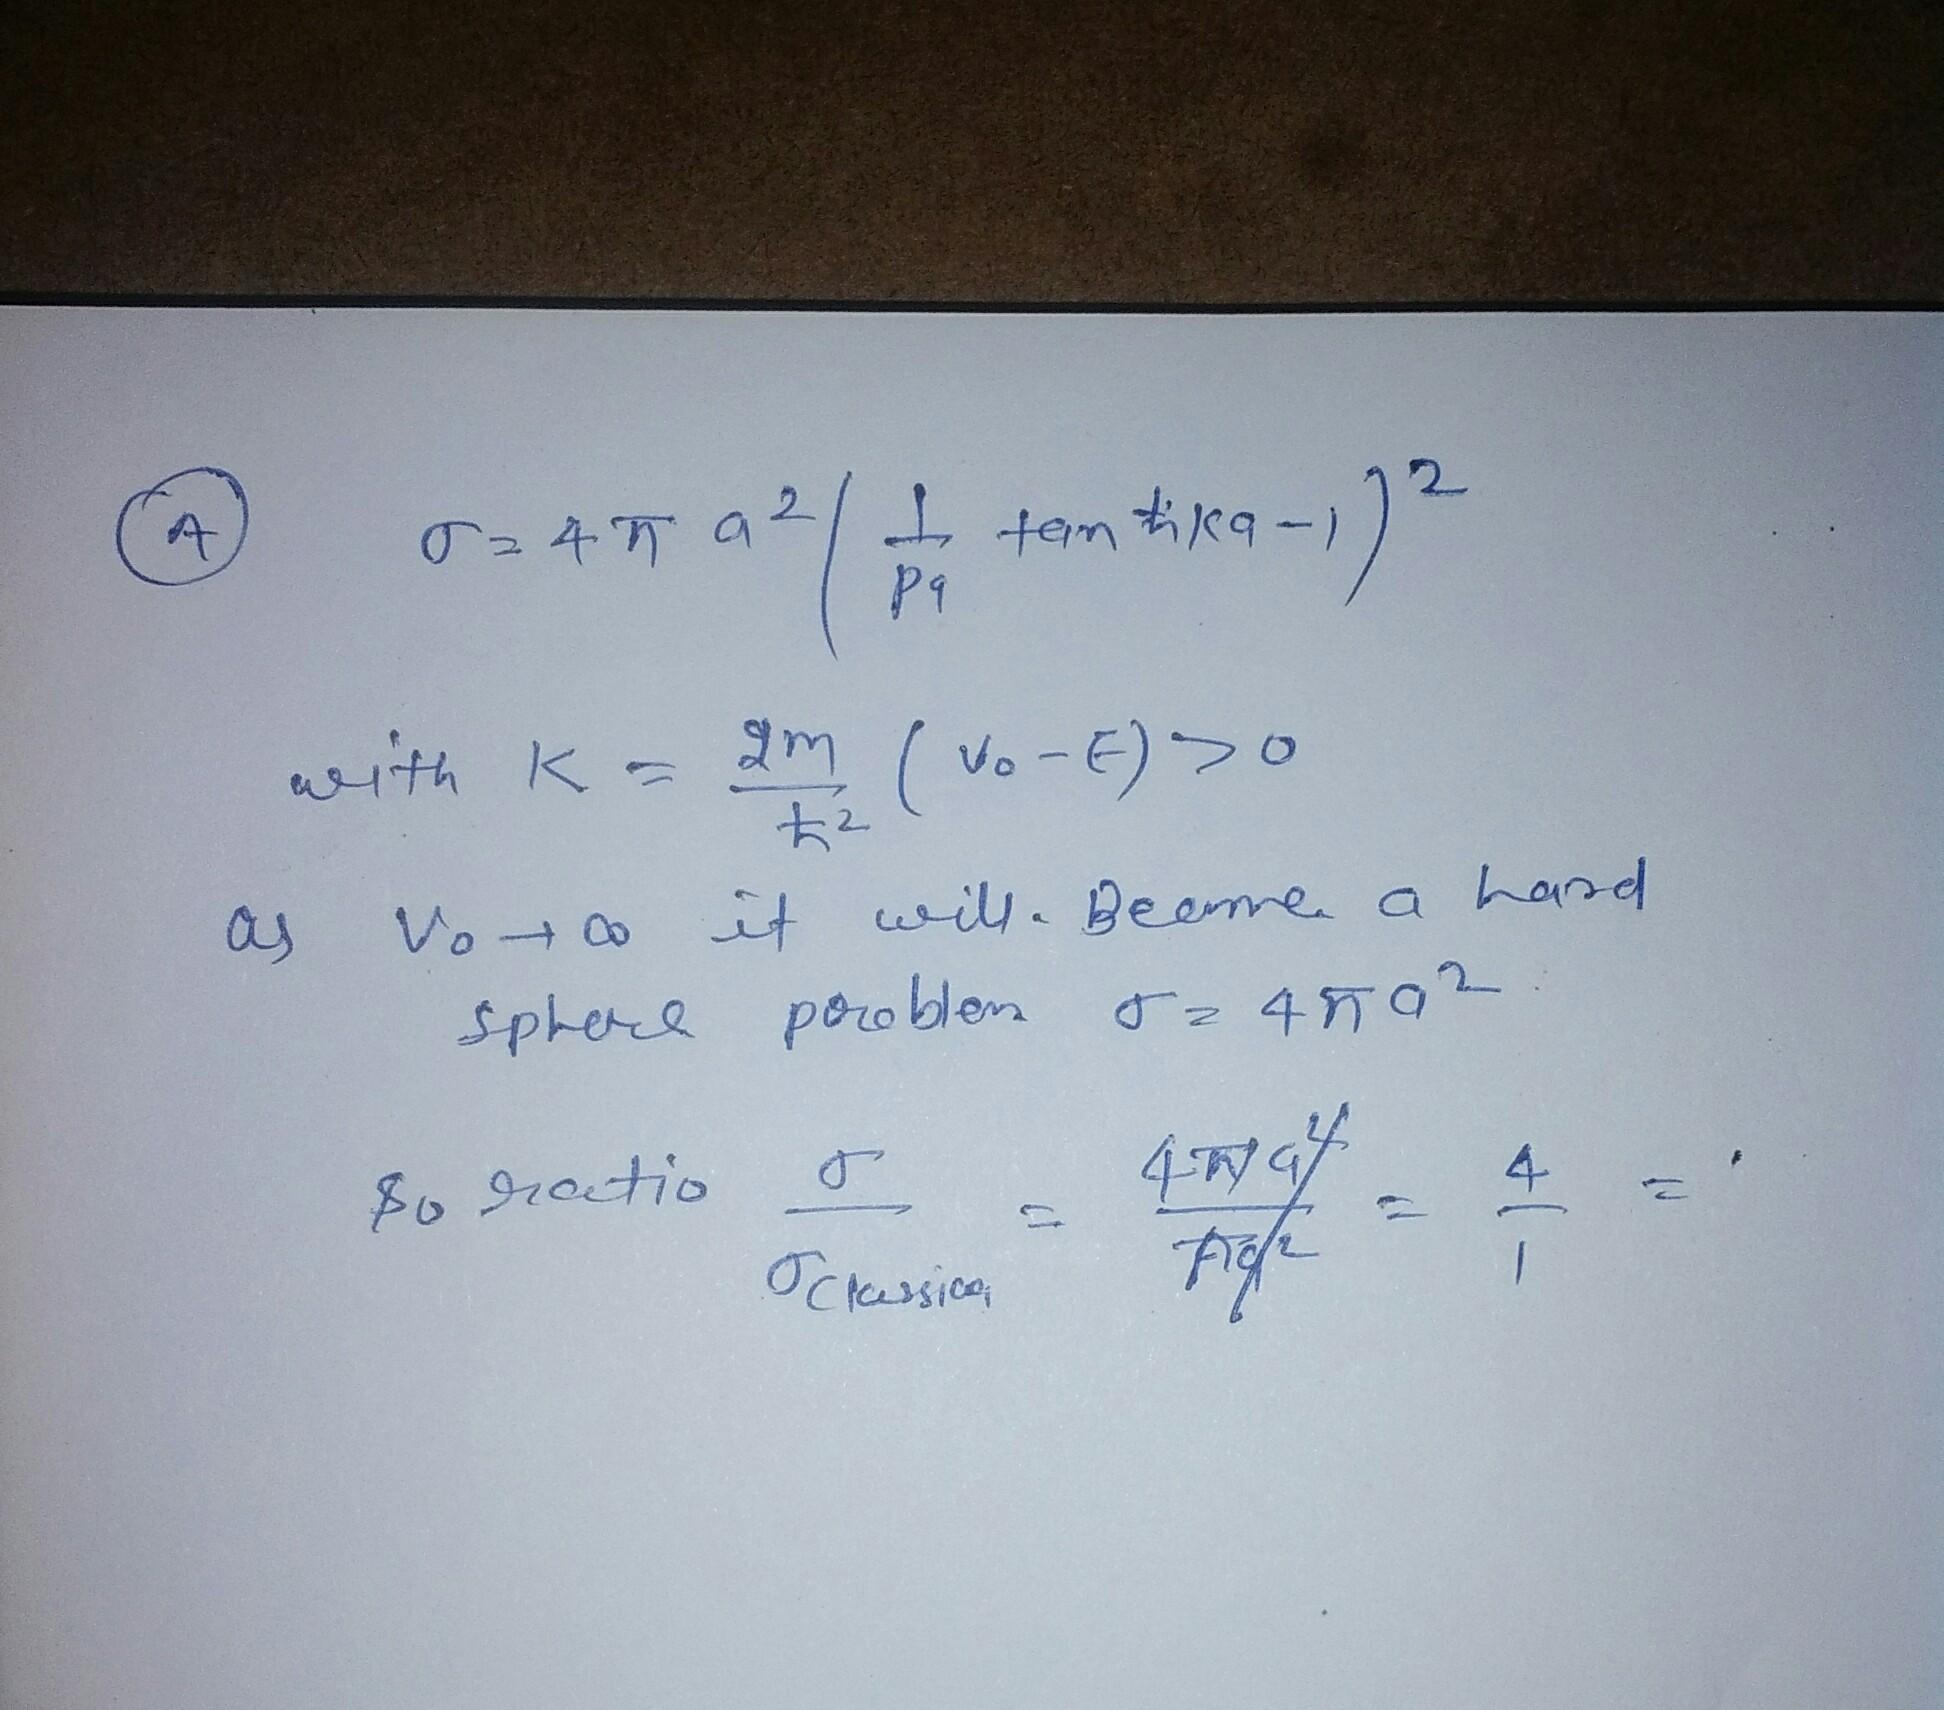 A σ = 4π a² ( 1/pa tan ħka - 1 )²
with K = 2m/ħ² ( V₀ - E ) > 0
as V₀ → ∞ it will. Become a hard
sphere problem σ = 4πa²
So ratio σ/σclassical = 4πa²/πa² = 4/1 =